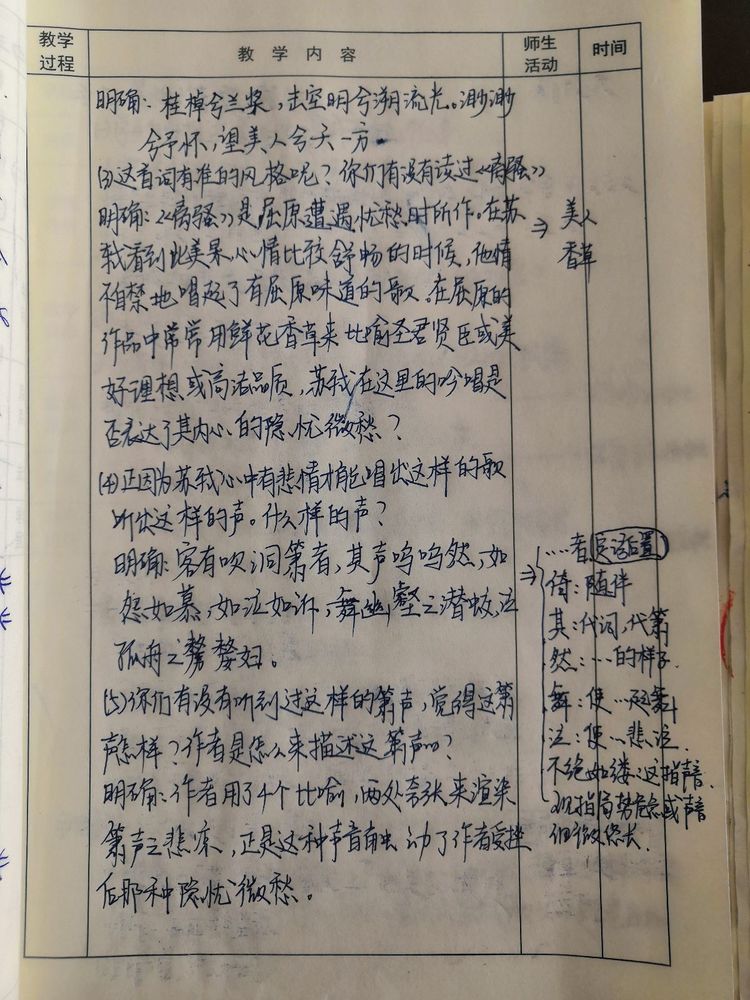 教学过程
教学内容
师生活动
时间
明确：桂棹兮兰桨，击空明兮溯流光。渺渺
兮予怀，望美人兮天一方。
(3)这首词有谁的风格呢？你们有没有读过《离骚》
明确：《离骚》是屈原遭遇忧愁时所作。在苏
轼看到此美景心情比较舒畅的时候，他情
不自禁地唱起了有屈原味道的歌。在屈原的
作品中常常用鲜花香草来比喻圣君贤臣或美
好理想或高洁品质，苏轼在这里的吟唱是
否表达了其内心的隐忧微愁？
(4)正因为苏轼心中有悲情才能唱出这样的歌
听出这样的声。什么样的声？
明确：客有吹洞箫者，其声呜呜然，如
怨如慕，如泣如诉，舞幽壑之潜蛟，泣
孤舟之嫠妇。
(5)你们有没有听到过这样的箫声，觉得这箫
声怎样？作者是怎么来描述这箫声的？
明确：作者用了4个比喻，两处夸张来渲染
箫声之悲凉，正是这种声音触动了作者受挫
后那种隐忧微愁。
⇒ 美人
香草
⇒ …者 定语后置
倚：随伴
其：代词，代箫
然：…的样子
舞：使…起舞
泣：使…悲泣
不绝如缕：这指声音
现指局势危急或声音
细微悠长.